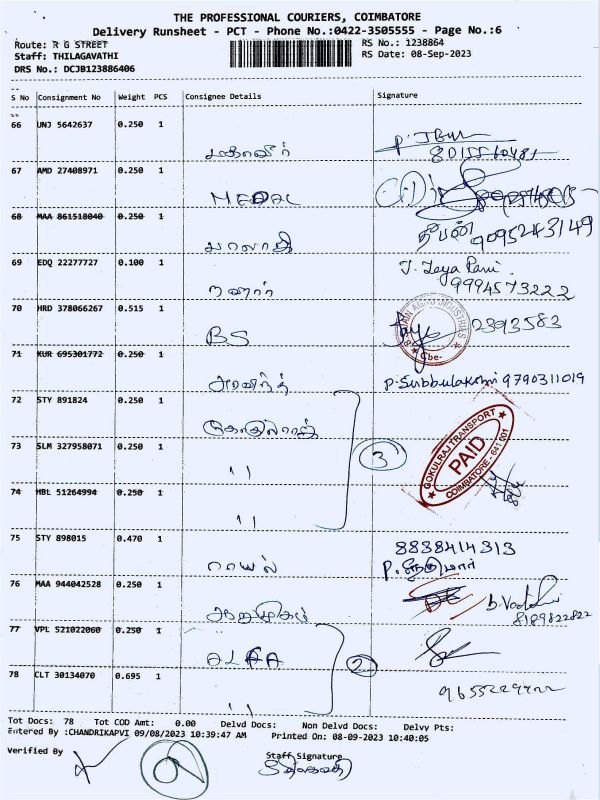 THE PROFESSIONAL COURIERS, COIMBATORE
Delivery Runsheet - PCT - Phone No.:0422-3505555 - Page No.:6
Route: R G STREET
RS No.: 1238864
Staff: THILAGAVATHI
RS Date: 08-Sep-2023
DRS No.: DCJB123886406
S No Consignment No Weight PCS Consignee Details Signature
66 UNJ 5642637 0.250 1
மகாவீர்
67 AMD 27408971 0.250 1
MEDAL
68 MAA 861518040 0.250 1 தீபன் 9095243149
பாலாஜி
69 EDQ 22277727 0.100 1 J. Jeya Rani.
9994573222
70 HRD 378066267 0.515 1 2393583
BS
71 KUR 695301772 0.250 1
அரவிந்த் P. Subbulakshmi 9790311019
72 STY 891824 0.250 1
கோகுல்ராஜ்
GOKULRAJ TRANSPORT
PAID
COIMBATORE - 641 001
73 SLM 327958071 0.250 1 3
"
74 HBL 51264994 0.250 1
"
75 STY 898015 0.470 1 8838414313
ராயல்
76 MAA 944042528 0.250 1
ஆறுமுகம் 8189822822
77 VPL 521022060 0.250 1
ALFA 2
78 CLT 30134070 0.695 1
"
Tot Docs: 78 Tot COD Amt: 0.00 Delvd Docs: Non Delvd Docs: Delvy Pts:
Entered By :CHANDRIKAPVI 09/08/2023 10:39:47 AM Printed On: 08-09-2023 10:40:05
Verified By Staff Signature
திலகவதி